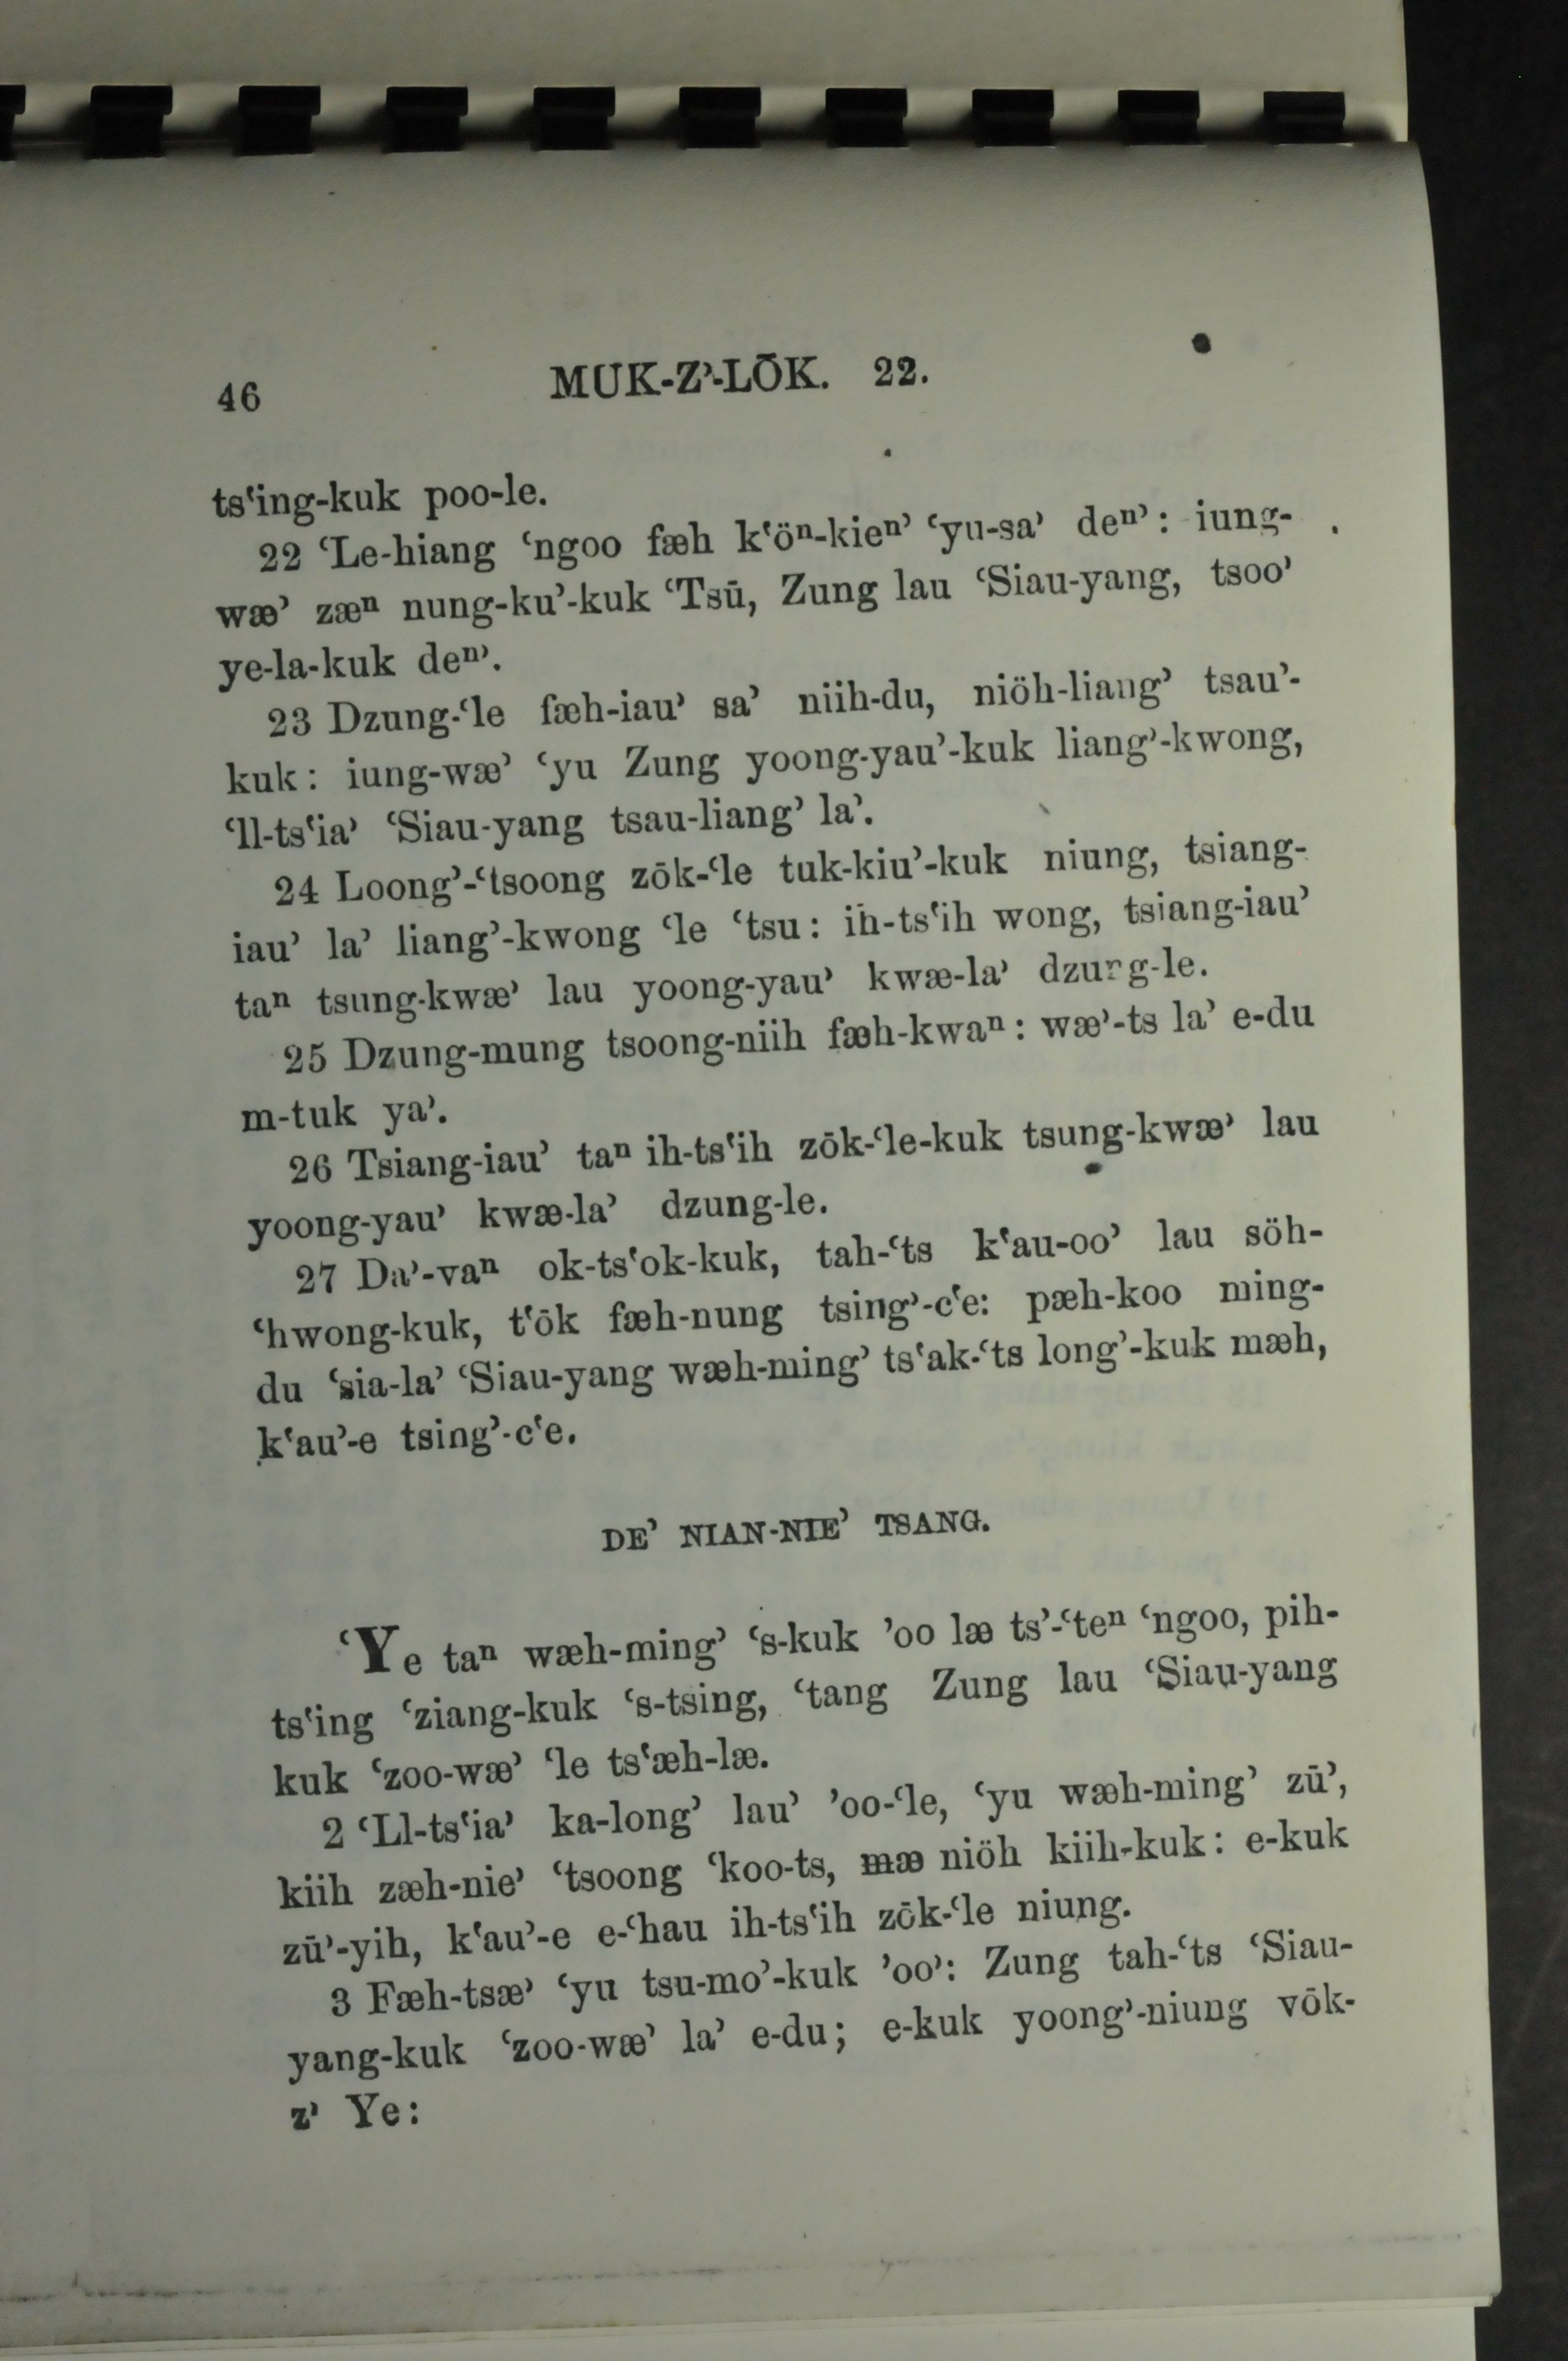 46 MUK-Z’-LŌK. 22.
ts‘ing-kuk poo-le.
22 ‘Le-hiang ‘ngoo fæh k‘öⁿ-kieⁿ’ ‘yu-sa’ deⁿ’: iung-
wæ’ zæⁿ nung-ku’-kuk ‘Tsū, Zung lau ‘Siau-yang, tsoo’
ye-la-kuk deⁿ’.
23 Dzung-‘le fæh-iau’ sa’ niih-du, niöh-liang’ tsau’-
kuk: iung-wæ’ ‘yu Zung yoong-yau’-kuk liang’-kwong,
‘ll-ts‘ia’ ‘Siau-yang tsau-liang’ la’.
24 Loong’-‘tsoong zōk-‘le tuk-kiu’-kuk niung, tsiang-
iau’ la’ liang’-kwong ‘le ‘tsu: ih-ts‘ih wong, tsiang-iau’
taⁿ tsung-kwæ’ lau yoong-yau’ kwæ-la’ dzung-le.
25 Dzung-mung tsoong-niih fæh-kwaⁿ: wæ’-ts la’ e-du
m-tuk ya’.
26 Tsiang-iau’ taⁿ ih-ts‘ih zōk-‘le-kuk tsung-kwæ’ lau
yoong-yau’ kwæ-la’ dzung-le.
27 Da’-vaⁿ ok-ts‘ok-kuk, tah-‘ts k‘au-oo’ lau söh-
‘hwong-kuk, t‘ōk fæh-nung tsing’-c‘e: pæh-koo ming-
du ‘sia-la’ ‘Siau-yang wæh-ming’ ts‘ak-‘ts long’-kuk mæh,
k‘au’-e tsing’-c‘e.
DE’ NIAN-NIE’ TSANG.
‘Ye taⁿ wæh-ming’ ‘s-kuk ’oo læ ts’-‘teⁿ ‘ngoo, pih-
ts‘ing ‘ziang-kuk ‘s-tsing, ‘tang Zung lau ‘Siau-yang
kuk ‘zoo-wæ’ ‘le ts‘æh-læ.
2 ‘Ll-ts‘ia’ ka-long’ lau’ ’oo-‘le, ‘yu wæh-ming’ zū’,
kiih zæh-nie’ ‘tsoong ‘koo-ts, mæ niöh kiih-kuk: e-kuk
zū’-yih, k‘au’-e e-‘hau ih-ts‘ih zōk-‘le niung.
3 Fæh-tsæ’ ‘yu tsu-mo’-kuk ’oo’: Zung tah-‘ts ‘Siau-
yang-kuk ‘zoo-wæ’ la’ e-du; e-kuk yoong’-niung vōk-
z’ Ye: